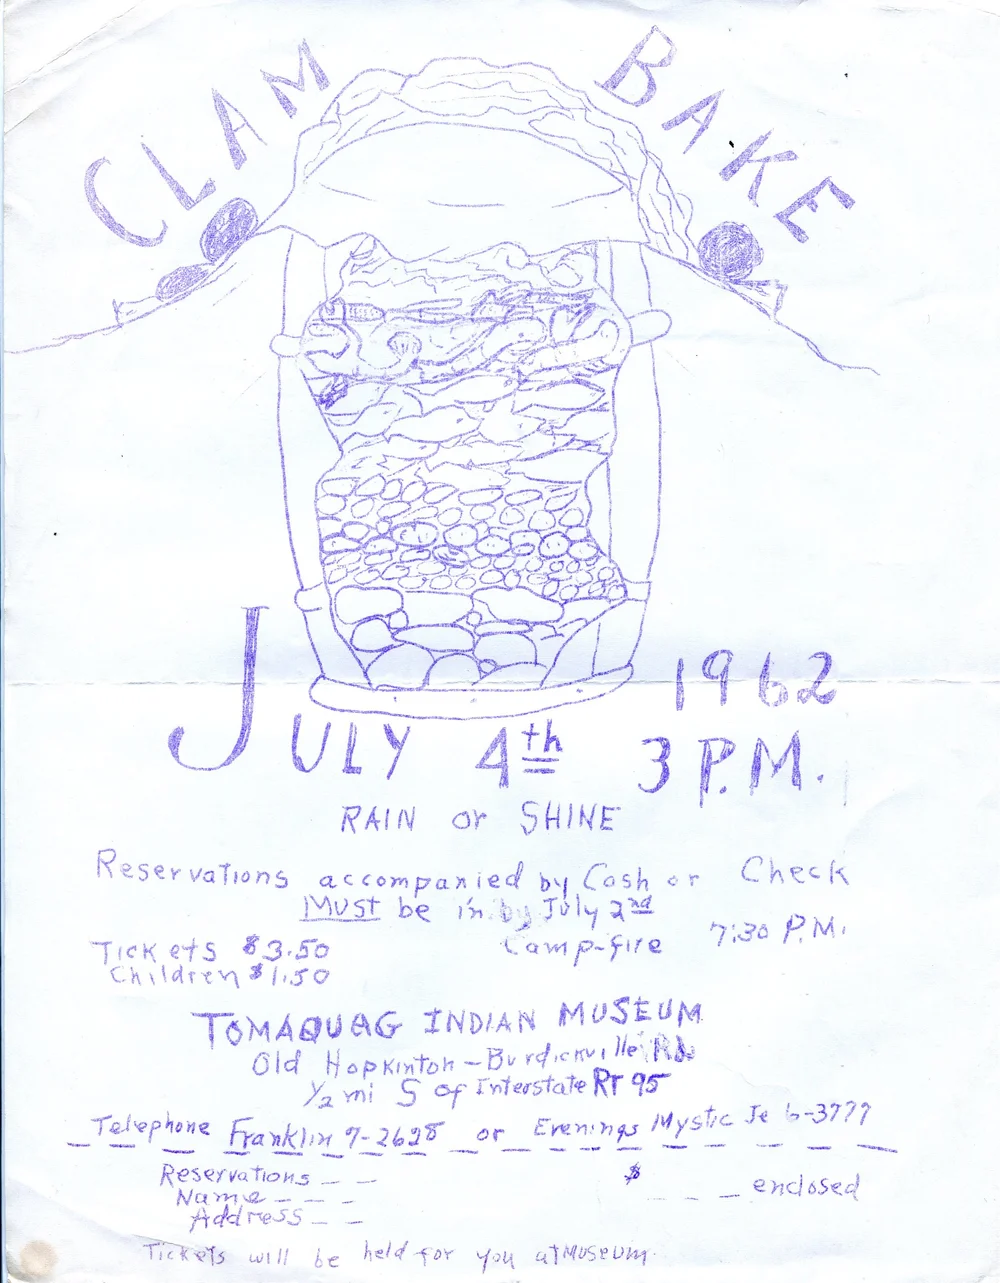 CLAM BAKE
JULY 4th 1962
3 P.M.
RAIN or SHINE
Reservations accompanied by Cash or Check
MUST be in by July 2nd
Tickets $3.50
Children $1.50
Camp-fire 7:30 P.M.
TOMAQUAG INDIAN MUSEUM
Old Hopkinton-Burdickville Rd
1/2 mi S of Interstate RT 95
Telephone Franklin 7-2698 or Evenings Mystic Je 6-3777
Reservations _ _ $ _ _ _ enclosed
Name _ _ _
Address _ _
Tickets will be held for you at MUSEUM.